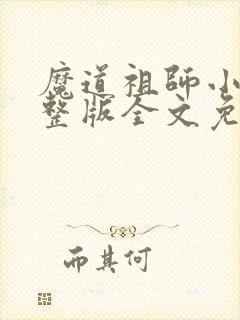 魔道祖師小
整版全文免
而其何